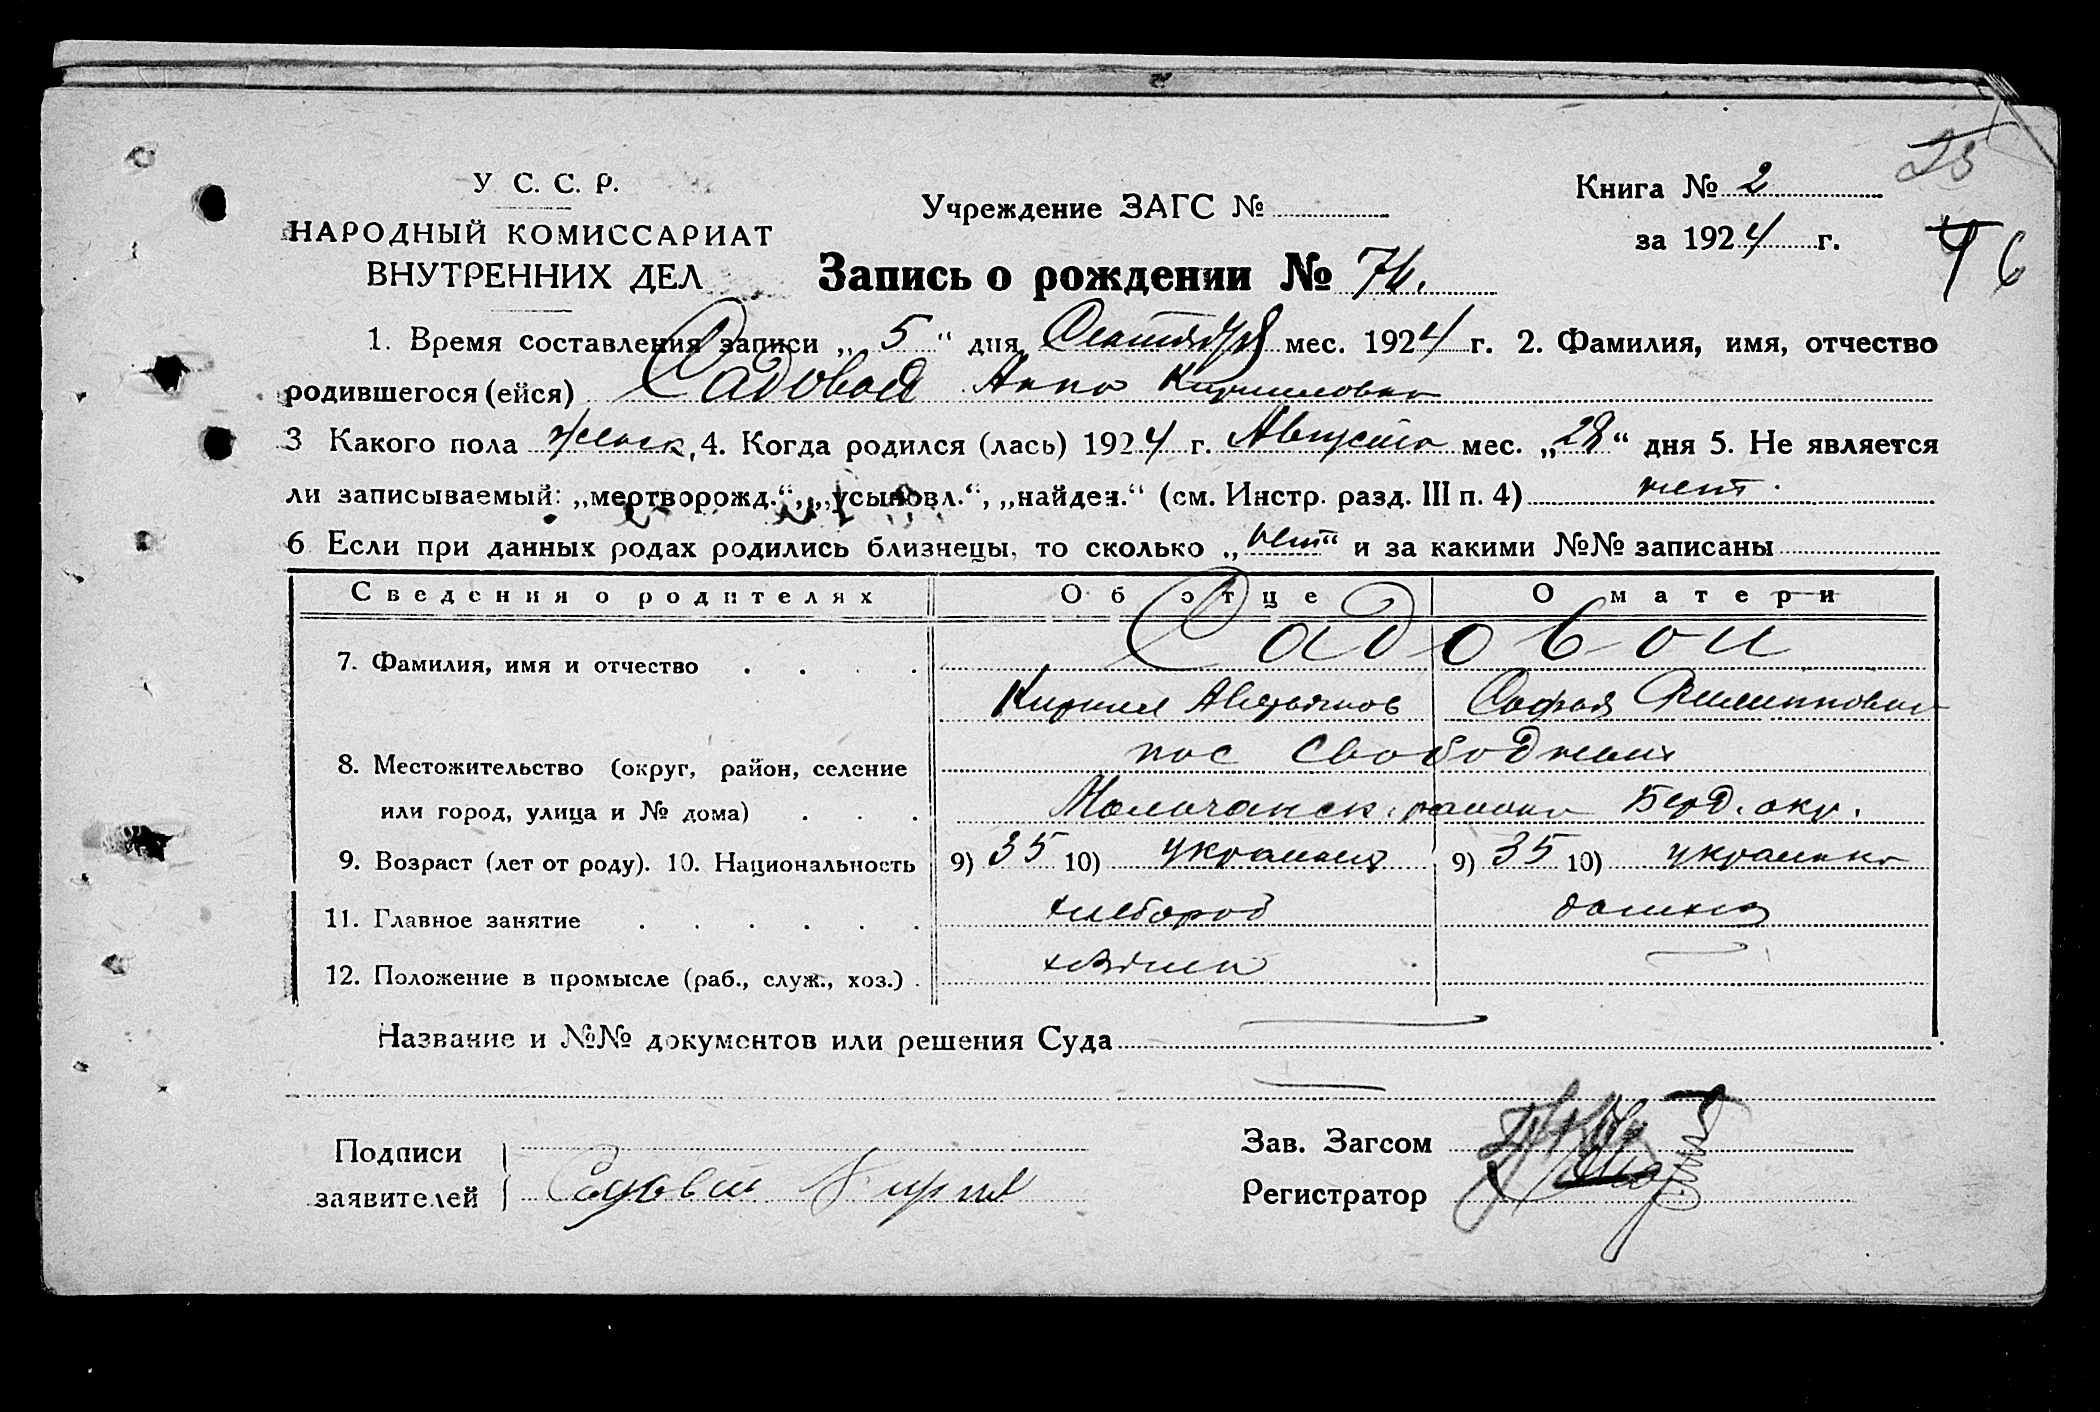 У С. С. Р.
НАРОДНЫЙ КОМИССАРИАТ
ВНУТРЕННИХ ДЕЛ
Учреждение ЗАГС №
Книга № 2
за 1924 г.
Запись о рождении № 76.
76
1. Время составления записи „5“ дня Сентября мес. 1924 г. 2. Фамилия, имя, отчество
родившегося (ейся) Садовая Анна Кирилловна
3 Какого пола женск, 4. Когда родился (лась) 1924 г. Августа мес. „28“ дня 5. Не является
ли записываемый: „мертворожд.“, „усыновл.“, „найден.“ (см. Инстр. разд. III п. 4) нет.
6 Если при данных родах родились близнецы, то сколько „нет“ и за какими №№ записаны
Сведения о родителях Об отце О матери
7. Фамилия, имя и отчество Садовои
Кирилл Софья Филипповна
8. Местожительство (округ, район, селение пос Свободный
или город, улица и № дома) Молочанск. района Берд. окр.
9. Возраст (лет от роду). 10. Национальность 9) 35 10) украинец 9) 35 10) украинка
11. Главное занятие хлебороб домашн
12. Положение в промысле (раб., служ., хоз.) хозяин
Название и №№ документов или решения Суда
Подписи
заявителей Садовой Кирил
Зав. Загсом
Регистратор